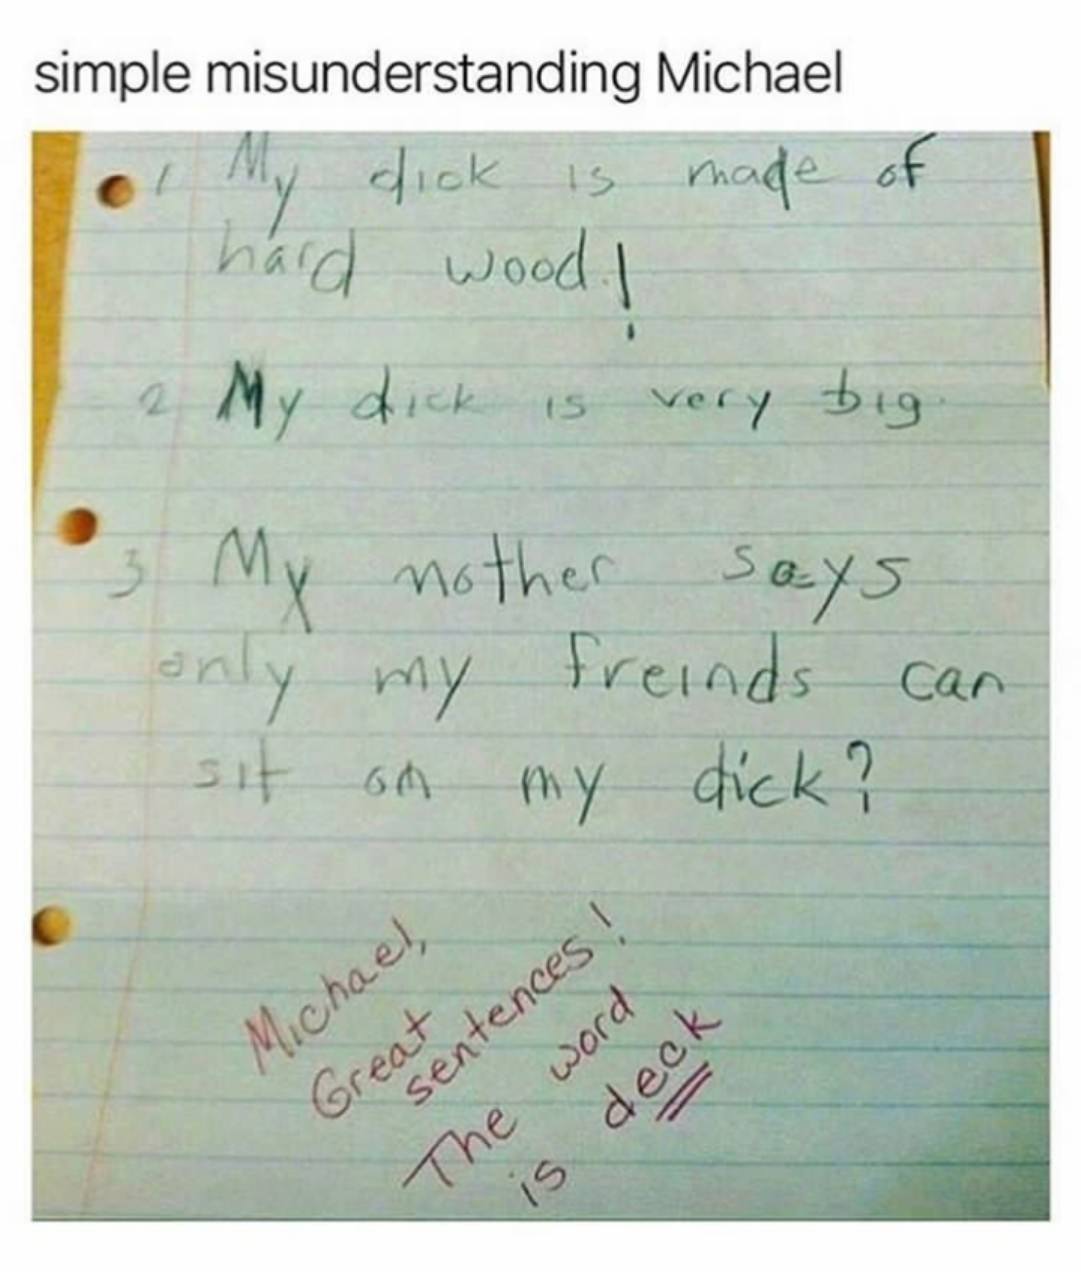 simple misunderstanding Michael
1 My dick is made of
hard wood!
2 My dick is very big.
3 My mother says
only my freinds can
sit on my dick?
Michael,
Great
sentences!
The word
is deck